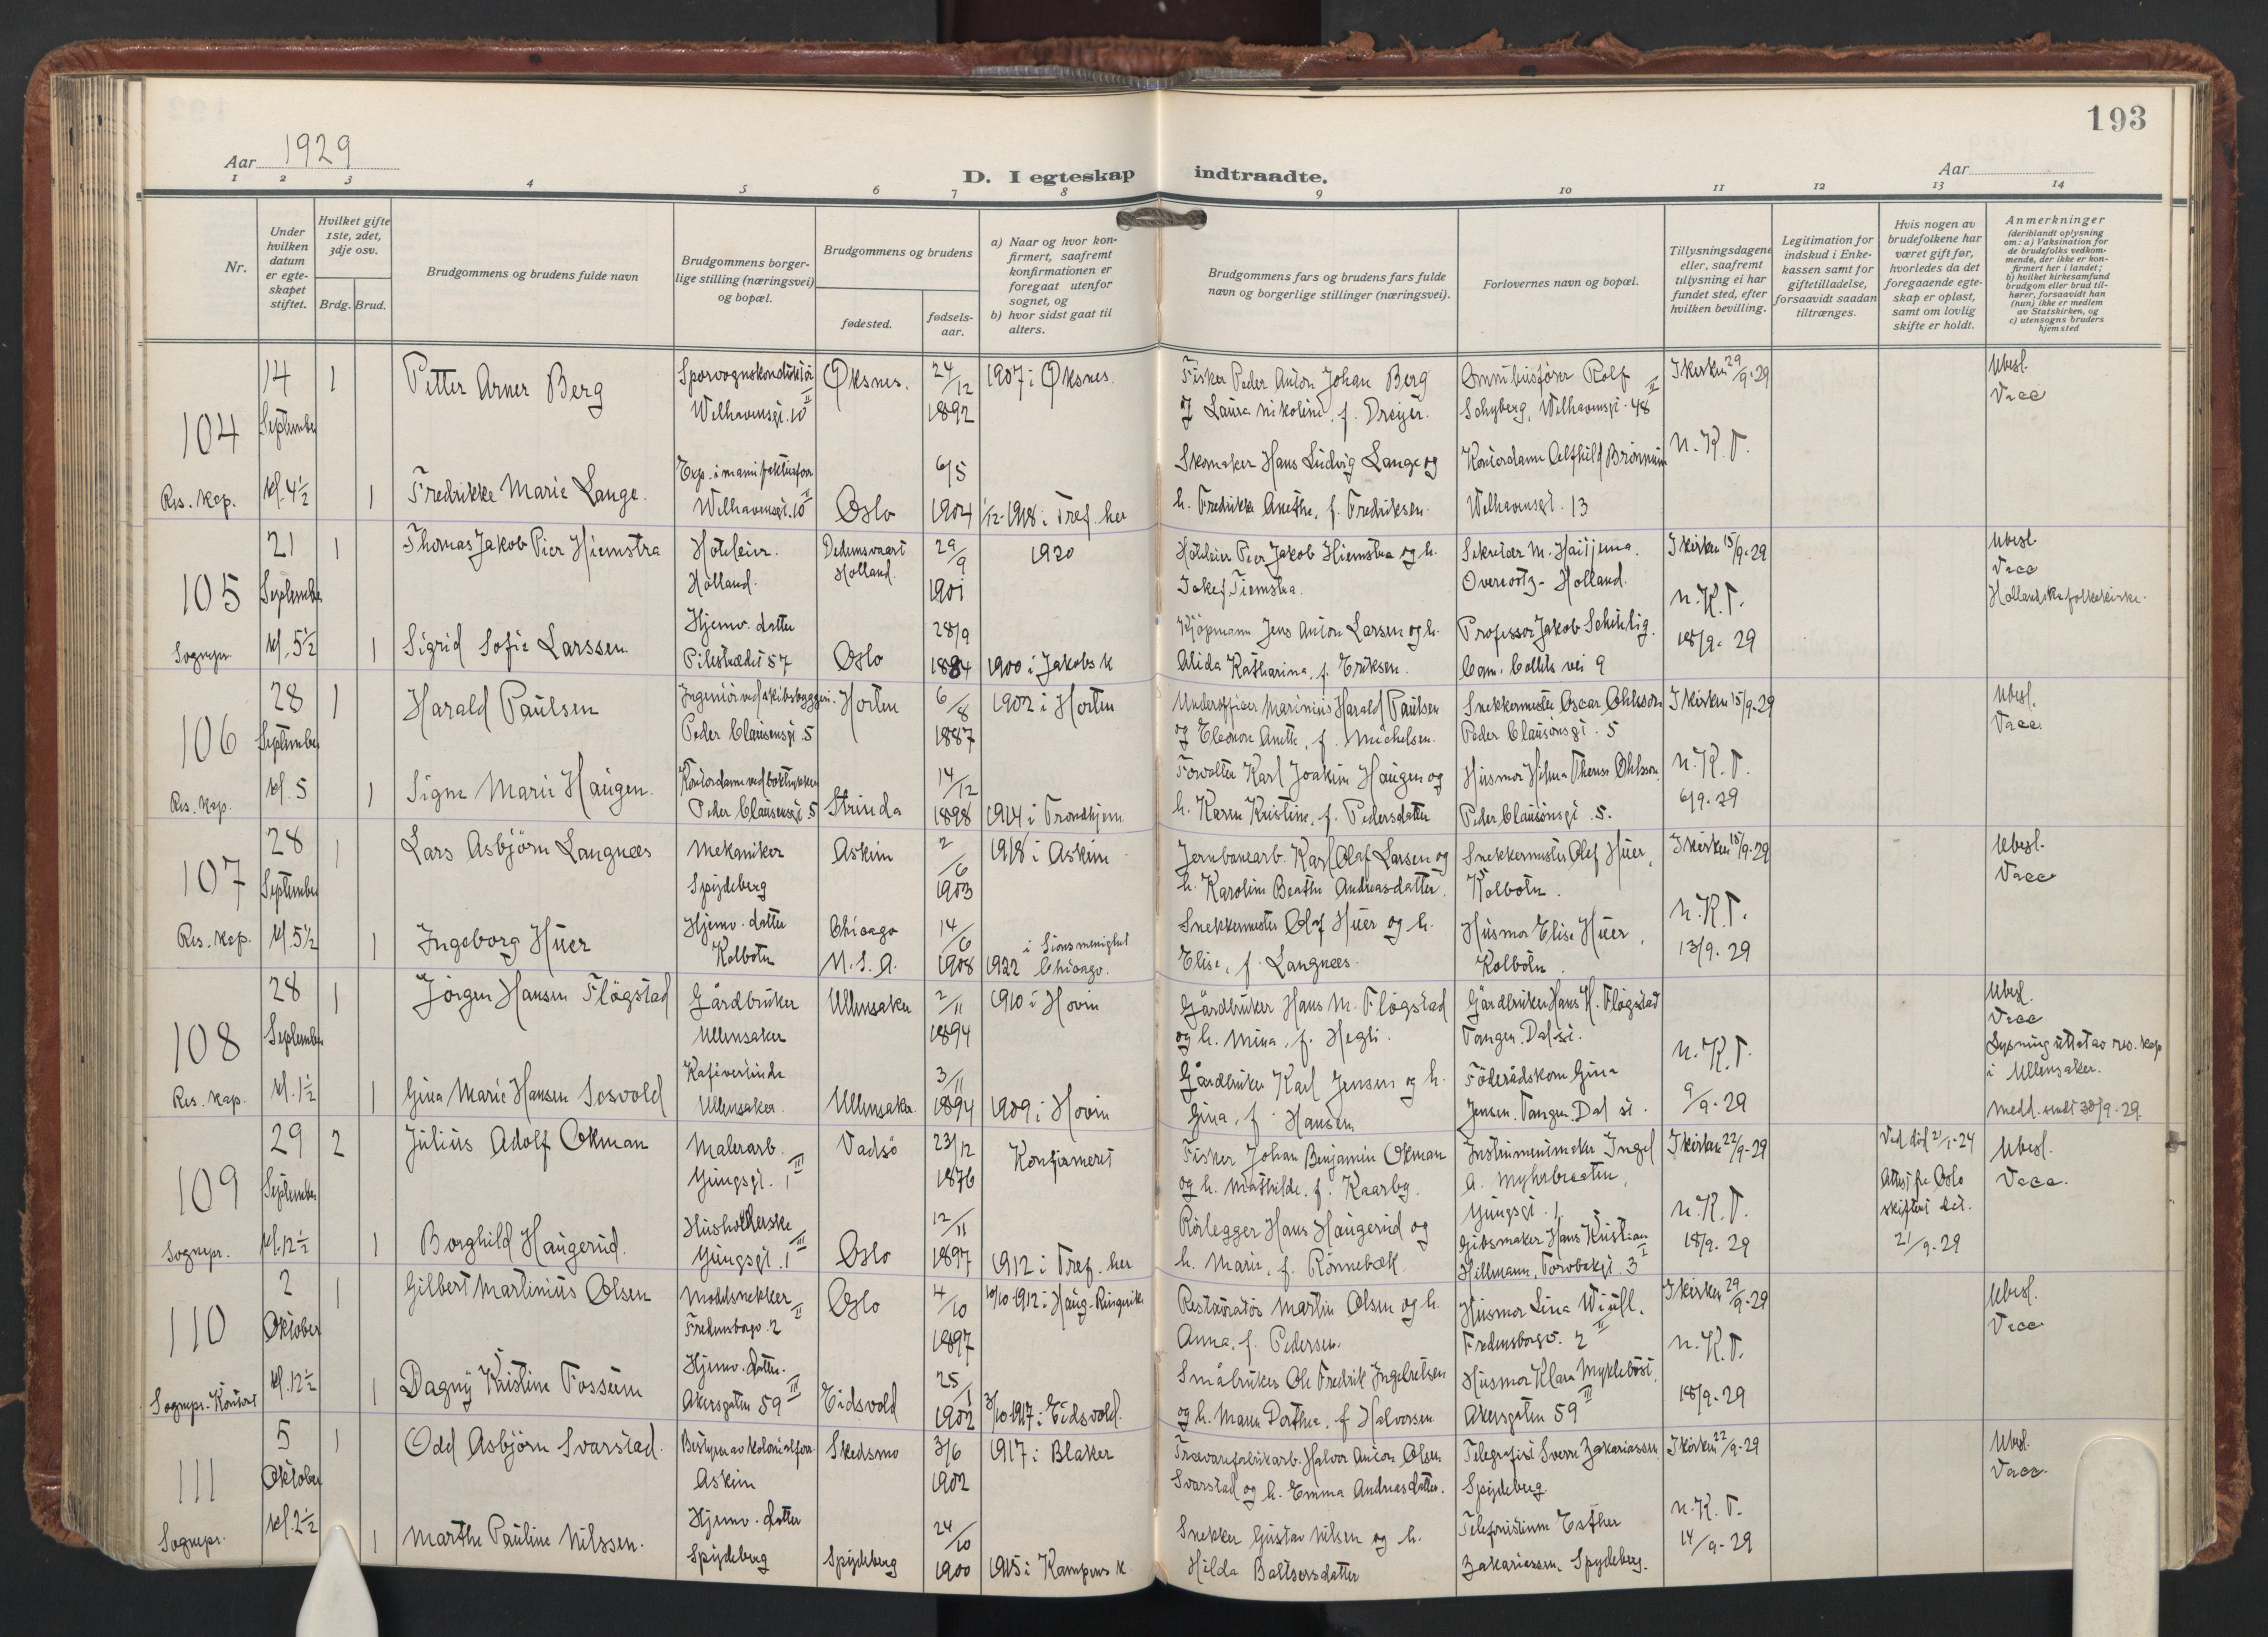 193
Aar 1929
D. I egteskap indtraadte.
Aar
1 2 3 4 5 6 7 8 9 10 11 12 13 14
Nr.
Under hvilken datum er egteskapet stiftet.
Hvilket gifte 1ste, 2det, 3dje osv.
Brdg. Brud.
Brudgommens og brudens fulde navn
Brudgommens borgerlige stilling (næringsvei) og bopæl.
Brudgommens og brudens
fødested.
fødselsaar.
a) Naar og hvor konfirmert, saafremt konfirmationen er foregaat utenfor sognet, og
b) hvor sidst gaat til alters.
Brudgommens fars og brudens fars fulde navn og borgerlige stillinger (næringsvei).
Forlovernes navn og bopæl.
Tillysningsdagene eller, saafremt tillysning ei har fundet sted, efter hvilken bevilling.
Legitimation for indskud i Enkekassen samt for giftetilladelse, forsaavidt saadan tiltrænges.
Hvis nogen av brudefolkene har været gift før, hvorledes da det foregaaende egteskap er opløst, samt om lovlig skifte er holdt.
Anmerkninger (deriblandt oplysning om: a) Vaksination for de brudefolks vedkommende, der ikke er konfirmert her i landet; b) hvilket kirkesamfund brudgom eller brud tilhører, forsaavidt han (hun) ikke er medlem av Statskirken, og c) utensogns bruders hjemsted
104 Res. Kap.
14 September kl. 4½
1 Petter Arner Berg
Sporvognskonduktør Welhavensgt. 10 II
Øksnes. 24/12 1892
1907 i Øksnes.
Fisker Peder Anton Johan Berg
og Laura Nikoline, f. Dreyer.
Omnibusfører Rolf
Schyberg, Welhavensgt. 48 II
I kirken 29/9-29
Ubesl.
Vacc
1 Fredrikke Marie Lange.
Exp. i manufakturforr
Welhavensgt. 10 II
Oslo 6/5 1904
1/12-1918 i Tref. her
Skomaker Hans Ludvig Lange og
h. Fredrikke Anethe, f. Fredriksen.
Kontordame
Welhavensgt. 13
N. K. T.
105 Sognepr.
21 September kl. 5½
1 Thomas Jakob Pier Hiemstra
Hoteleier.
Holland.
Dedemsvaart Holland. 29/9 1901
1920
Hoteleier Pier Jakob Hiemstra og h.
Tiemstra.
Sekretær M.
Holland.
I kirken 15/9-29
Ubesl.
Vacc
Hollandske folkekirke.
1 Sigrid Sofie Larssen.
Hjemv. datter
Pilestrædet 57
Oslo 28/9 1884
1900 i Jakobs k
Kjøpmann Jens Anton Larsen og h.
Alida Katharina, f. Eriksen.
Professor Jakob Schetelig.
Cam. Colletts vei 9
N. K. T.
18/9-29
106 Res. Kap.
28 September kl. 5
1 Harald Paulsen
Ingeniør ved skibsbyggeri.
Peder Claussensgt. 5
Horten 6/8 1887
1902 i Horten
Underofficer Marinius Harald Paulsen
og Eleonore Anette, f. Michelsen.
Snekkermester Oscar Ohlsson
Peder Claussonsgt. 5
I kirken 15/9-29
Ubesl.
Vacc.
1 Signe Marie Haugen.
Kontordame ved boktrykkeri
Peder Claussensgt. 5
Strinda 14/12 1898
1914 i Trondhjem
Forvalter Karl Joakim Haugen og
h. Karen Kristine, f. Pedersdatter
Husmor Hilma Therese Ohlsson.
Peder Claussonsgt. 5.
N. K. T.
6/9-29
107 Res. Kap.
28 September kl. 5½
1 Lars Asbjørn Langnæs
Mekaniker
Spydeberg
Askim 2/6 1903
1918 i Askim
Jernbanearb. Karl Olaf Larsen og
h. Karoline Beathe Andreasdatter.
Snekkermester Olaf Huer,
Kolbotn.
I kirken 15/9-29
Ubesl.
Vacc
1 Ingeborg Huer
Hjemv. datter
Kolbotn
Chicago U. S. A. 14/6 1908
1922 i Sionsmenighet Chicago.
Snekkermester Olaf Huer og h.
Elise, f. Langnæs.
Husmor Elise Huer,
Kolbotn.
N. K. T.
13/9-29
108 Res. Kap.
28 September kl. 1½
1 Jørgen Hansen Fløgstad
Gårdbruker
Ullensaker
Ullensaker 2/11 1894
1910 i Hovin
Gårdbruker Hans M. Fløgstad
og h. Mina, f. Hegli.
Gårdbruker Hans H. Fløgstad
Tangen. Dal st.
Ubesl.
Vacc
Lysning uttatt av res. kap
i Ullensaker.
1 Gina Marie Hansen Sosvold
Kafévertinde
Ullensaker.
Ullensaker 3/11 1894
1909 i Hovin
Gårdbruker Karl Jensen og h.
Gina, f. Hansen
Føderådskone Gina
Jensen. Tangen. Dal st.
N. K. T.
9/9-29
Medd. sendt 30/9-29.
109 Sognepr.
29 September kl. 12½
2 Julius Adolf Okman
Malerarb.
Yungsgt. 1 III
Vadsø 23/12 1876
Konfirmert
Fisker Johan Benjamin Okman
og h. Mathilde, f. Kaarby.
Instrumentmaker Ingol
A. Myhrbraaten,
Yungsgt. 1.
I kirken 22/9-29
Ved død 21/1-24
Attest fra Oslo
skifterett dat.
21/9-29
Ubesl.
Vacc.
1 Borghild Haugerud.
Husholderske
Yungsgt. 1 III
Oslo 12/11 1897
1912 i Tref. her
Rørlegger Hans Haugerud og
h. Marie, f. Rønnebæk.
Gibsmaker Hans Kristian
Hillmann, Torvbakgt. 3 I
N. K. T.
18/9-29
110 Sognepr. Kontor
2 Oktober kl. 12½
1 Gilbert Martinius Olsen
Modelsnekker
Fredensborgv. 2 II
Oslo 4/10 1897
10/10 1912 i Haug-Ringerike
Restauratør Martin Olsen og h.
Anna, f. Pedersen.
Husmor Lina Wiull.
Fredensborgv. 2 II
I kirken 29/9-29
Ubesl.
Vacc
1 Dagny Kristine Fossum
Hjemv. datter.
Akersgaten 59 III
Eidsvold 25/1 1902
3/10 1917 i Eidsvold.
Småbruker Ole Fredrik Ingebretsen
og h. Maren Dorthea, f. Halvorsen.
Husmor Klara Myklebost,
Akersgaten 59 III
N. K. T.
18/9-29
111 Sognepr.
5 Oktober kl. 2½
1 Odd Asbjørn Svarstad.
Bestyrer av kolonialforr.
Askim
Skedsmo 3/6 1902
1917 i Blaker
Trævarefabrikarb. Halvor Anton Olsen
Svarstad og h. Emma Andreasdatter.
Telegrafist Sverre Zakariassen
Spydeberg.
I kirken 22/9-29
Ubesl.
Vacc.
1 Marthe Pauline Nilssen.
Hjemv. datter
Spydeberg
Spydeberg 24/10 1900
1915 i Kampens k.
Snekker Gustav Nilsen og h.
Hilda Baltsersdatter
Telefonistinne Esther
Zakariassen. Spydeberg.
N. K. T.
14/9-29